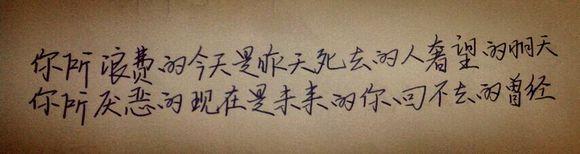 你所浪费的今天是昨天死去的人奢望的明天
你所厌恶的现在是未来的你回不去的曾经